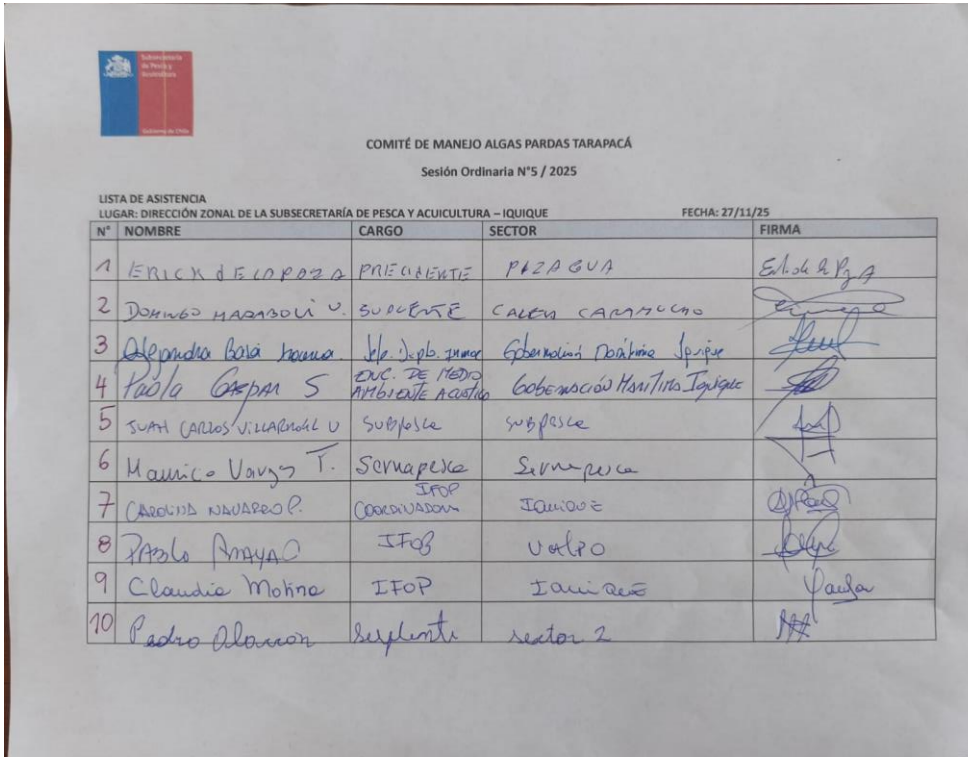 Subsecretaría
de Pesca y
Acuicultura
Gobierno de Chile
COMITÉ DE MANEJO ALGAS PARDAS TARAPACÁ
Sesión Ordinaria N°5 / 2025
LISTA DE ASISTENCIA
LUGAR: DIRECCIÓN ZONAL DE LA SUBSECRETARÍA DE PESCA Y ACUICULTURA – IQUIQUE FECHA: 27/11/25
N° NOMBRE CARGO SECTOR FIRMA
1 ERICK dE LAPOZA PRECIDENTE PIZAGUA
2 DOMINGO SUPLENTE CALETA CARAMUCHO
3 Alejandra Jefe. Gobernación Marítima Iquique
4 Paola GASPAR S ENC. DE MEDIO AMBIENTE ACUÁTICO GOBERNACIÓN MARITIMA Iquique
5 JUAN CARLOS VILLARROEL V SUBPESCA SUBPESCA
6 Mauricio Vargas T. Sernapesca Sernapesca
7 CAROLINA NAVARRO P. IFOP COORDINADORA IQUIQUE
8 PABLO ARAYA IFOP VALPO
9 Claudia Molina IFOP IQUIQUE
10 Pedro Alarcón Suplente sector 2